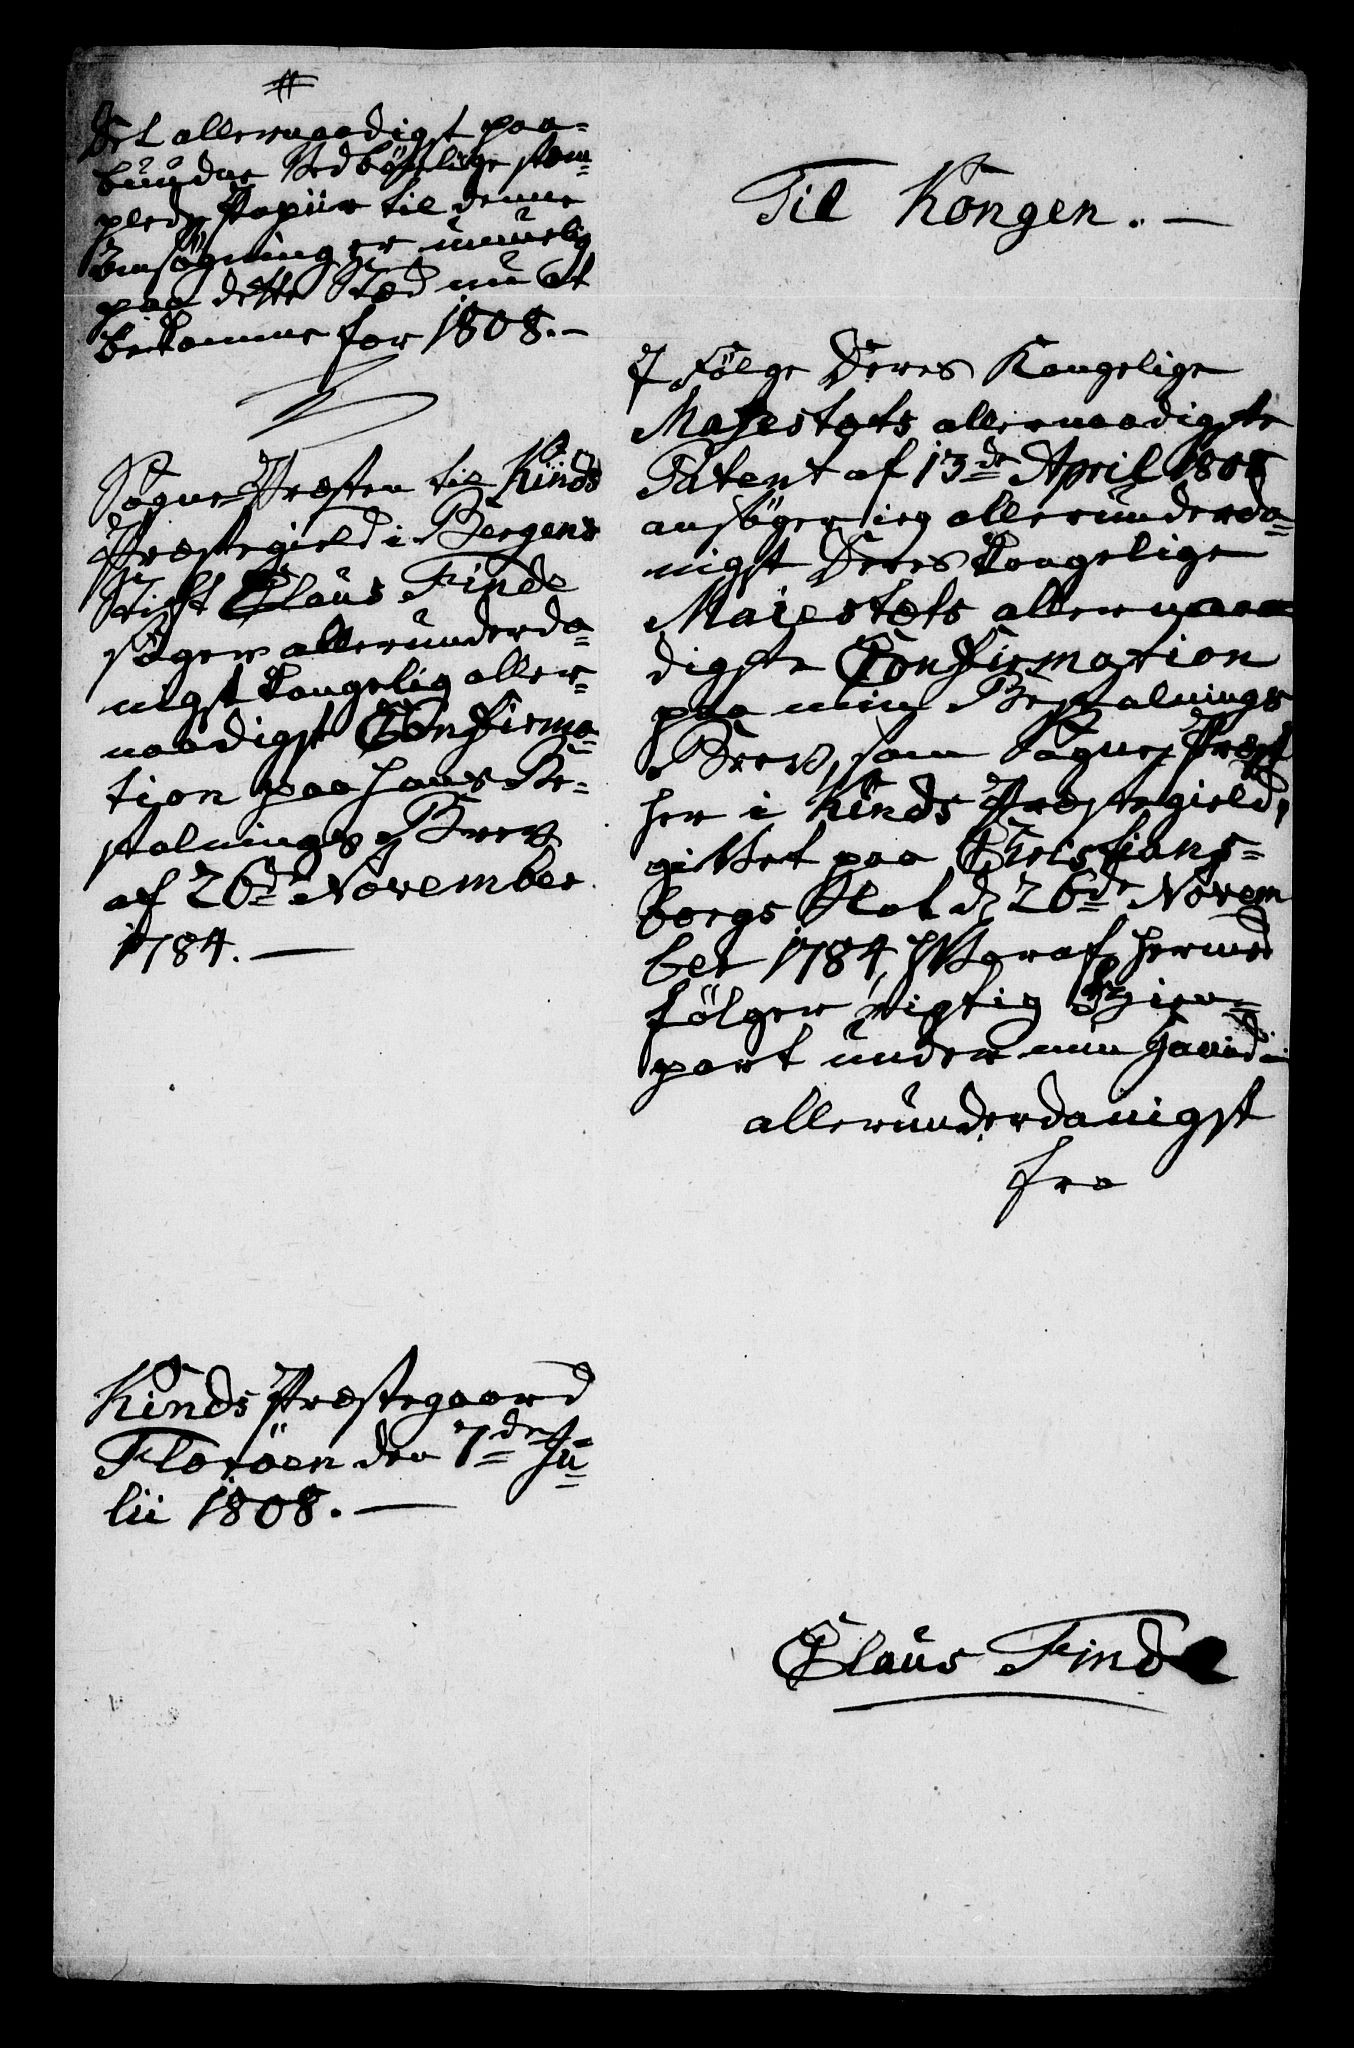 #
Det allernaadigst paa-
budne Vedbørlige stem-
plede Papiir til denne
Ansögning er umuelig
paa dette Stæd nu at
bekomme for 1808. -
Sogne-Præsten til Kinds
Præstegield i Bergens
Stift Claus Finde
söger allerunderda-
nigst kongelig aller-
naadigst Confirma-
tion paa hans Be-
stalnings Brev
af 26de November
1784. -
Kinds Præstegaard
Floröen den 7de Ju-
lii 1808. -
Til Kongen. -
I Fölge Deres Kongelige
Majestæts allernaadigste
Patent af 13de April 1808
ansöger ieg allerunderda-
nigst Deres Kongelige
Maiestæts allernaa-
digste Confirmation
paa min Bestalnings
Brev, som Sogne-Præst
her i Kinds Præstegield,
givet paa Christians-
borgs Slot d. 26de Novem
ber 1784, hvoraf hermed
fölger rigtig Gien-
part under min Haand
allerunderdanigst
fra
Claus Finde